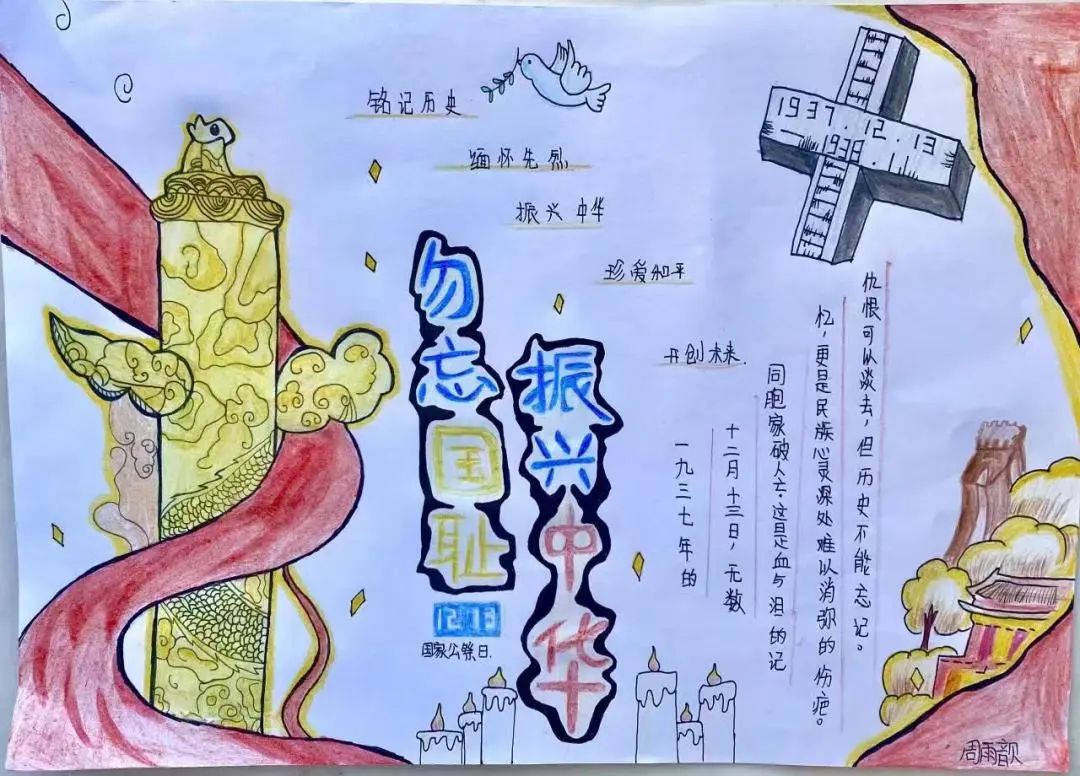 铭记历史
缅怀先烈
振兴中华
珍爱和平
开创未来.
1937.12.13
—1938.1
勿忘国耻
振兴中华
12 13
国家公祭日.
一九三七年的
十二月十三日，无数
同胞家破人亡.这是血与泪的记
忆，更是民族心灵深处难以消弥的伤疤。
仇恨可以淡去，但历史不能忘记。
周雨歆